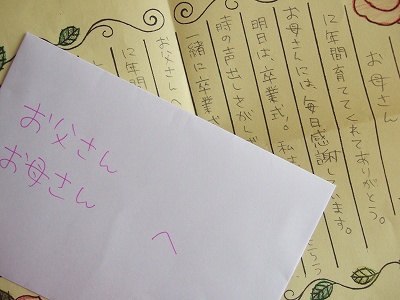 お母さん
12年間育ててくれてありがとう。
お母さんには、毎日感謝しています。
明日は、卒業式。私
時の声出しさがし
一緒に卒業式
お父さんへ
12年間
お父さん
お母さん
へ